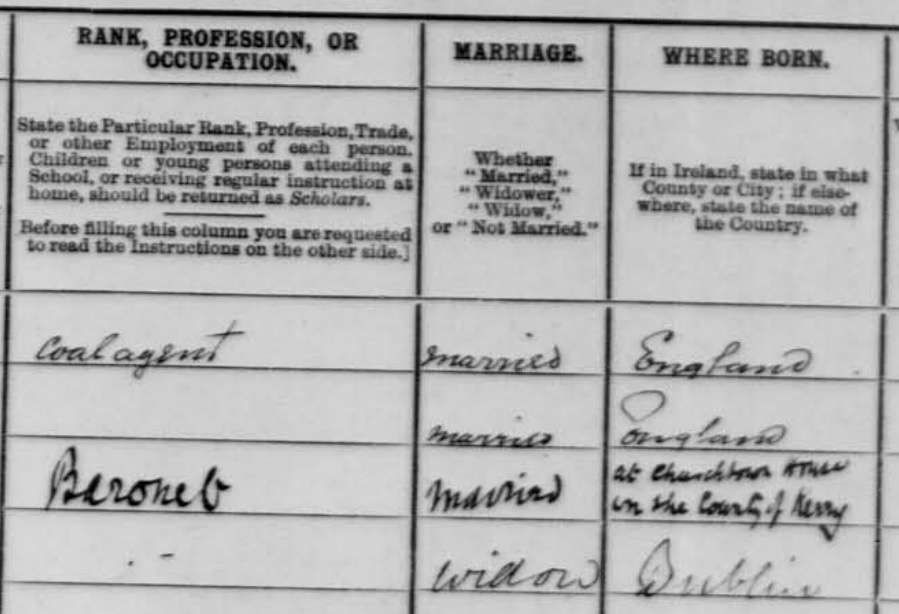 RANK, PROFESSION, OR
OCCUPATION.
State the Particular Rank, Profession, Trade,
or other Employment of each person.
Children or young persons attending a
School, or receiving regular instruction at
home, should be returned as Scholars.
Before filling this column you are requested
to read the Instructions on the other side.]
MARRIAGE.
Whether
"Married,"
"Widower,"
"Widow,"
or "Not Married."
WHERE BORN.
If in Ireland, state in what
County or City; if else-
where, state the name of
the Country.
Coal agent married England
married England
Baronet Married at Churchtown House
in the County of Kerry
widow Dublin